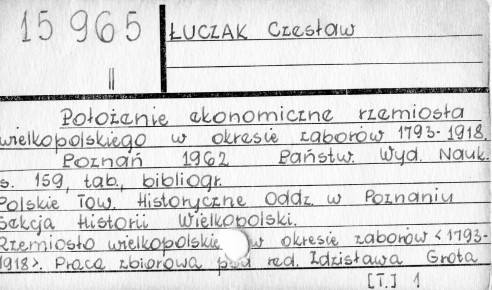 15 965
ŁUCZAK Czesław
||
Położenie ekonomiczne rzemiosła
wielkopolskiego w okresie zaborów 1793-1918.
Poznań 1962 Państw. Wyd. Nauk.
s. 159, tab., bibliogr.
Polskie Tow. Historyczne Oddz. w Poznaniu
Sekcja Historii Wielkopolski.
Rzemiosło wielkopolskie w okresie zaborów <1793-
1918>. Praca zbiorowa pod red. Zdzisława Grota
[T.] 1